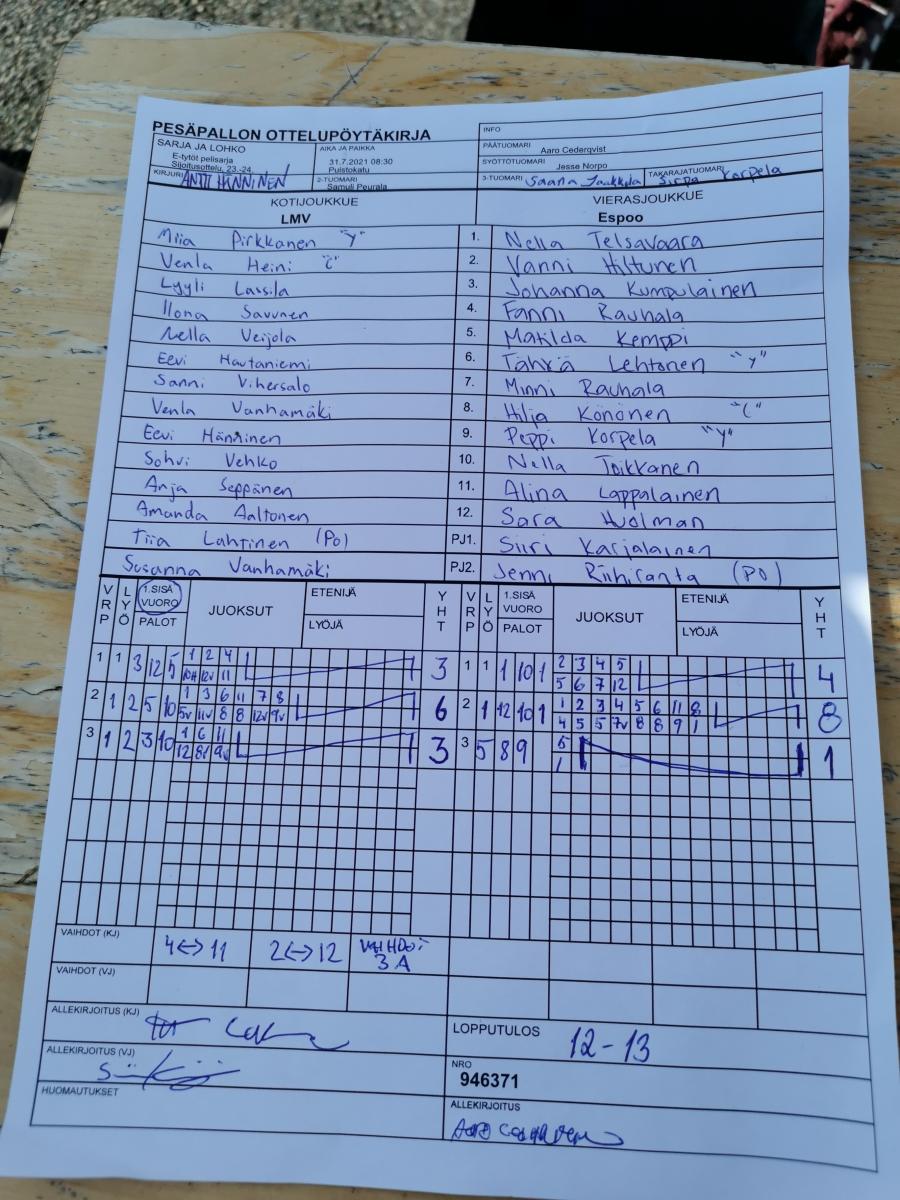 PESÄPALLON OTTELUPÖYTÄKIRJA
INFO
SARJA JA LOHKO
E-tytöt pelisarja
Sijoitusottelu, 23.-24.
AIKA JA PAIKKA
31.7.2021 08:30
Puistokatu
PÄÄTUOMARI Aaro Cederqvist
SYÖTTÖTUOMARI Jesse Norpo
KIRJURI ANTTI HÄNNINEN
2-TUOMARI Samuli Peurala
3-TUOMARI Saana Jaakkola
TAKARAJATUOMARI Sirpa Korpela
KOTIJOUKKUE
LMV
VIERASJOUKKUE
Espoo
Miia Pirkkanen "Y" 1. Nella Telsavaara
Venla Heini "C" 2. Vanni Hiltunen
Lyyli Lassila 3. Johanna Kumpulainen
Ilona Savunen 4. Fanni Rauhala
Nella Veijola 5. Matilda Kemppi
Eevi Hautaniemi 6. Tähkä Lehtonen "Y"
Sanni Vihersalo 7. Minni Rauhala
Venla Vanhamäki 8. Hilja Könönen "C"
Eevi Hänninen 9. Peppi Korpela "Y"
Sohvi Vehko 10. Nella Toikkanen
Anja Seppänen 11. Alina Lappalainen
Amanda Aaltonen 12. Sara Huolman
Tiia Lahtinen (PO) PJ1. Siiri Karjalainen
Susanna Vanhamäki PJ2. Jenni Riihiranta (PO)
VRP LYÖ 1.SISÄ VUORO PALOT JUOKSUT ETENIJÄ LYÖJÄ YHT VRP LYÖ 1.SISÄ VUORO PALOT JUOKSUT ETENIJÄ LYÖJÄ YHT
1 1 3 12 5 1 2 4 3 1 1 1 10 1 2 3 4 5 4
12v 11 5 6 7 12
2 1 2 5 10 1 3 6 11 7 8 6 2 1 12 10 1 1 2 3 4 5 6 11 8 8
5v 11v 8 8 12v 9v 4 5 5 7v 8 8 9 1
3 1 2 3 10 1 6 11 3 3 5 8 9 6 1
12 8v 9v 1
VAIHDOT (KJ) 4↔11 2↔12 VAIHDOT 3A
VAIHDOT (VJ)
ALLEKIRJOITUS (KJ)
LOPPUTULOS 12-13
ALLEKIRJOITUS (VJ)
NRO
946371
HUOMAUTUKSET
ALLEKIRJOITUS